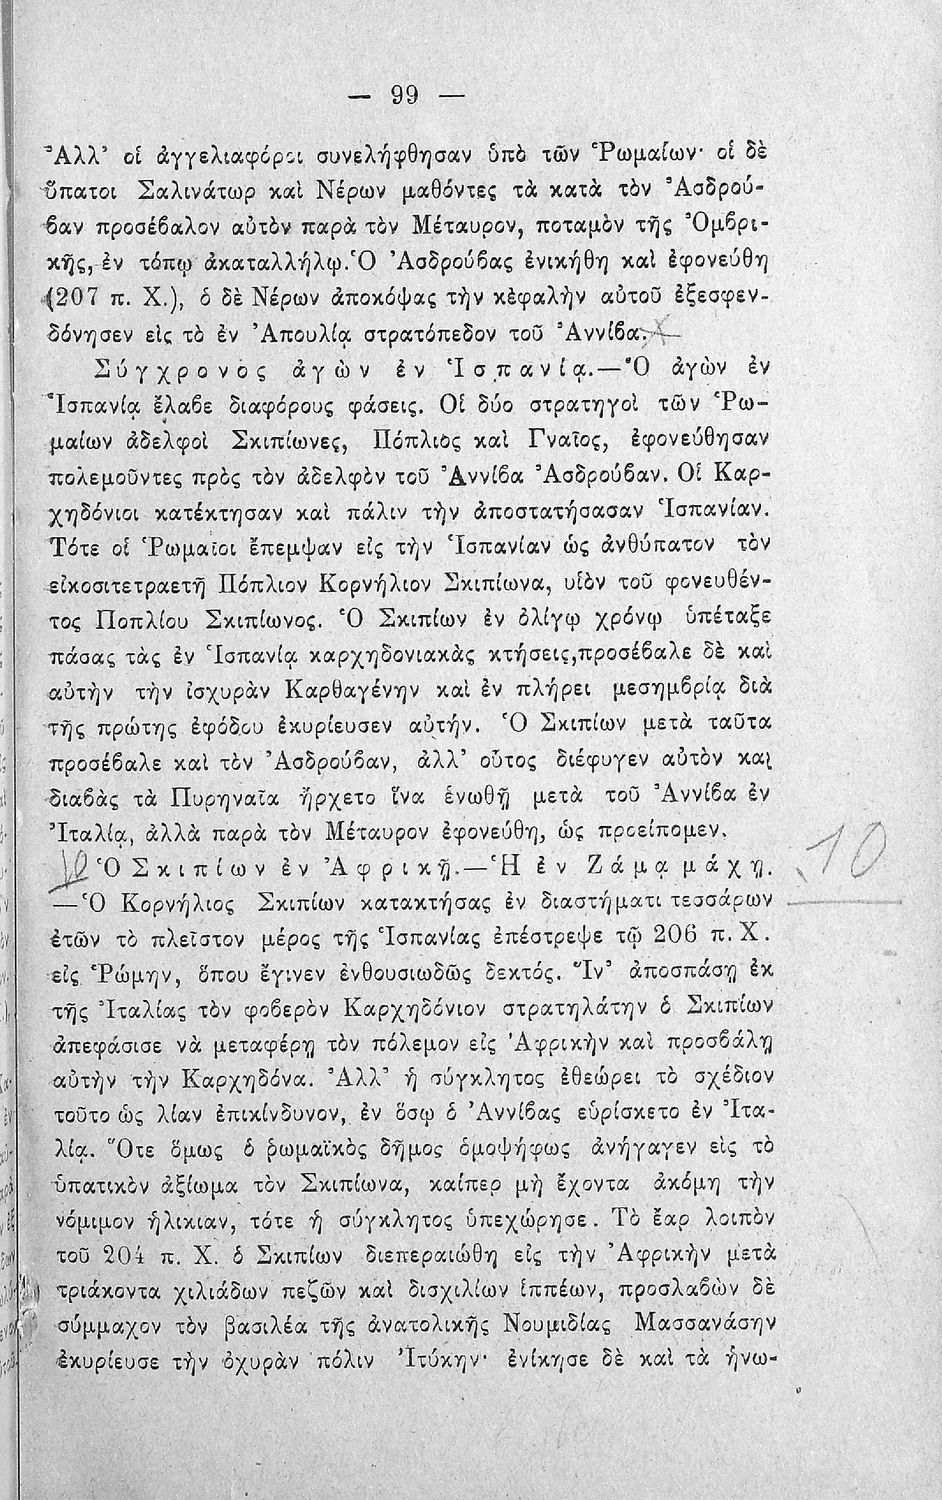 — 99 —
Ἀλλ' οἱ ἀγγελιαφόροι συνελήφθησαν ὑπὸ τῶν Ῥωμαίων· οἱ δὲ
ὕπατοι Σαλινάτωρ καὶ Νέρων μαθόντες τὰ κατὰ τὸν Ἀσδρού-
βαν προσέβαλον αὐτὸν παρὰ τὸν Μέταυρον, ποταμὸν τῆς Ὀμβρι-
κῆς, ἐν τόπῳ ἀκαταλλήλῳ. Ὁ Ἀσδρούβας ἐνικήθη καὶ ἐφονεύθη
(207 π. Χ.), ὁ δὲ Νέρων ἀποκόψας τὴν κεφαλὴν αὐτοῦ ἐξεσφεν-
δόνησεν εἰς τὸ ἐν Ἀπουλίᾳ στρατόπεδον τοῦ Ἀννίβα.
Σύγχρονος ἀγὼν ἐν Ἱσπανίᾳ.—Ὁ ἀγὼν ἐν
Ἱσπανίᾳ ἔλαβε διαφόρους φάσεις. Οἱ δύο στρατηγοὶ τῶν Ῥω-
μαίων ἀδελφοὶ Σκιπίωνες, Πόπλιος καὶ Γναῖος, ἐφονεύθησαν
πολεμοῦντες πρὸς τὸν ἀδελφὸν τοῦ Ἀννίβα Ἀσδρούβαν. Οἱ Καρ-
χηδόνιοι κατέκτησαν καὶ πάλιν τὴν ἀποστατήσασαν Ἱσπανίαν.
Τότε οἱ Ῥωμαῖοι ἔπεμψαν εἰς τὴν Ἱσπανίαν ὡς ἀνθύπατον τὸν
εἰκοσιτετραετῆ Πόπλιον Κορνήλιον Σκιπίωνα, υἱὸν τοῦ φονευθέν-
τος Ποπλίου Σκιπίωνος. Ὁ Σκιπίων ἐν ὀλίγῳ χρόνῳ ὑπέταξε
πάσας τὰς ἐν Ἱσπανίᾳ καρχηδονιακὰς κτήσεις, προσέβαλε δὲ καὶ
αὐτὴν τὴν ἰσχυρὰν Καρθαγένην καὶ ἐν πλήρει μεσημβρίᾳ διὰ
τῆς πρώτης ἐφόδου ἐκυρίευσεν αὐτήν. Ὁ Σκιπίων μετὰ ταῦτα
προσέβαλε καὶ τὸν Ἀσδρούβαν, ἀλλ' οὗτος διέφυγεν αὐτὸν καὶ
διαβὰς τὰ Πυρηναῖα ἤρχετο ἵνα ἑνωθῇ μετὰ τοῦ Ἀννίβα ἐν
Ἰταλίᾳ, ἀλλὰ παρὰ τὸν Μέταυρον ἐφονεύθη, ὡς προείπομεν.
10 Ὁ Σκιπίων ἐν Ἀφρικῇ.—Ἡ ἐν Ζάμᾳ μάχη. 10
—Ὁ Κορνήλιος Σκιπίων κατακτήσας ἐν διαστήματι τεσσάρων
ἐτῶν τὸ πλεῖστον μέρος τῆς Ἱσπανίας ἐπέστρεψε τῷ 206 π. Χ.
εἰς Ῥώμην, ὅπου ἔγινεν ἐνθουσιωδῶς δεκτός. Ἵν' ἀποσπάσῃ ἐκ
τῆς Ἰταλίας τὸν φοβερὸν Καρχηδόνιον στρατηλάτην ὁ Σκιπίων
ἀπεφάσισε νὰ μεταφέρῃ τὸν πόλεμον εἰς Ἀφρικὴν καὶ προσβάλῃ
αὐτὴν τὴν Καρχηδόνα. Ἀλλ' ἡ σύγκλητος ἐθεώρει τὸ σχέδιον
τοῦτο ὡς λίαν ἐπικίνδυνον, ἐν ὅσῳ ὁ Ἀννίβας εὑρίσκετο ἐν Ἰτα-
λίᾳ. Ὅτε ὅμως ὁ ῥωμαϊκὸς δῆμος ὁμοψήφως ἀνήγαγεν εἰς τὸ
ὑπατικὸν ἀξίωμα τὸν Σκιπίωνα, καίπερ μὴ ἔχοντα ἀκόμη τὴν
νόμιμον ἡλικιαν, τότε ἡ σύγκλητος ὑπεχώρησε. Τὸ ἔαρ λοιπὸν
τοῦ 204 π. Χ. ὁ Σκιπίων διεπεραιώθη εἰς τὴν Ἀφρικὴν μετὰ
τριάκοντα χιλιάδων πεζῶν καὶ δισχιλίων ἱππέων, προσλαβὼν δὲ
σύμμαχον τὸν βασιλέα τῆς ἀνατολικῆς Νουμιδίας Μασσανάσην
ἐκυρίευσε τὴν ὀχυρὰν πόλιν Ἰτύκην· ἐνίκησε δὲ καὶ τὰ ἡνω-